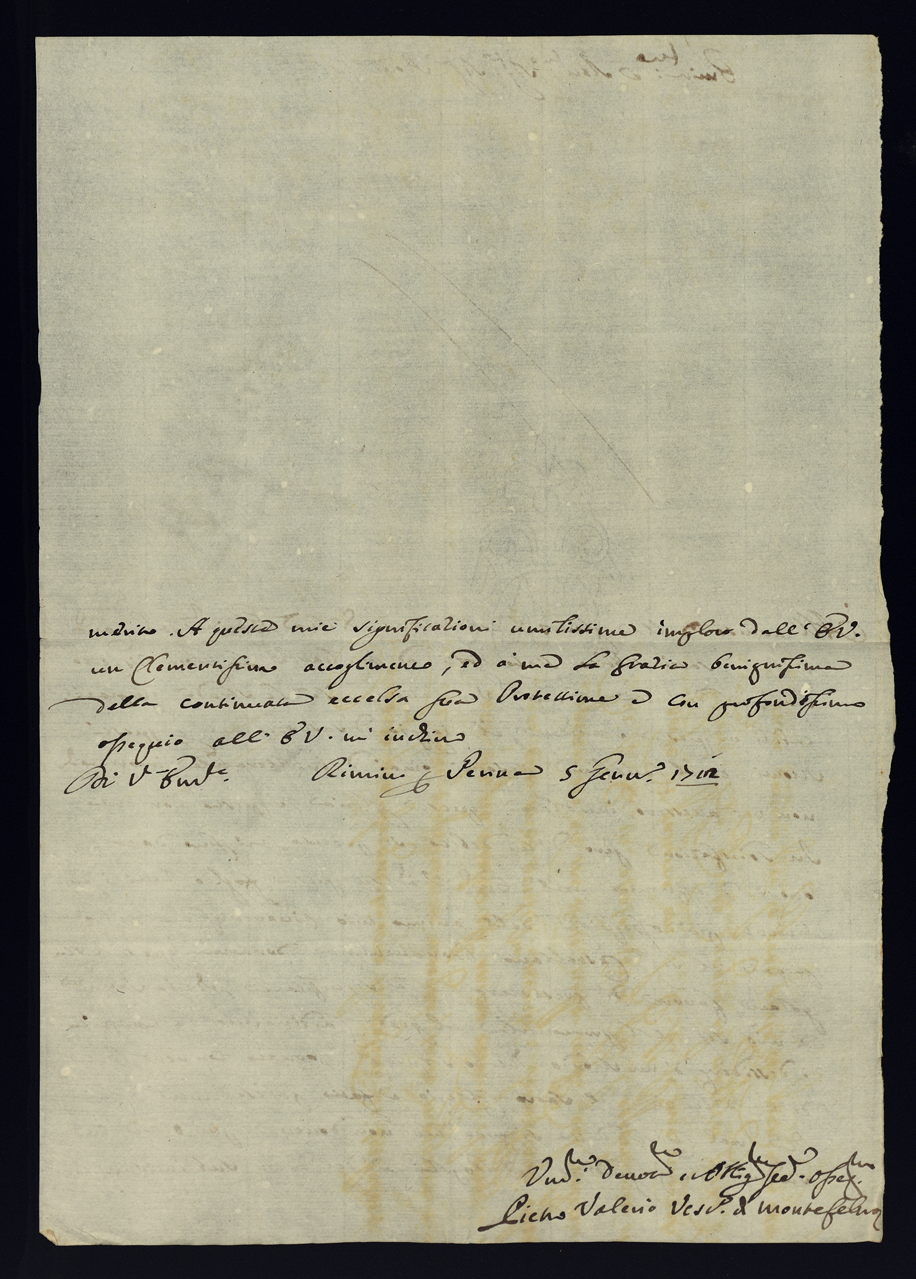 merito. A queste mie significationi umilissime imploro dall' E.V.
un Clementissimo accoglimento, ed à me la gratia benignissima
della continuata eccelsa sua Protettione e con profondissimo
ossequio all' E.V. mi inchino
Di V. Em.ª Rimino Penna 5 Genn.º 1702
Um.mo Devot.mo et Obblig.mo Ser. Osseq.mo
Pietro Valerio Vesc.º di Montefeltro